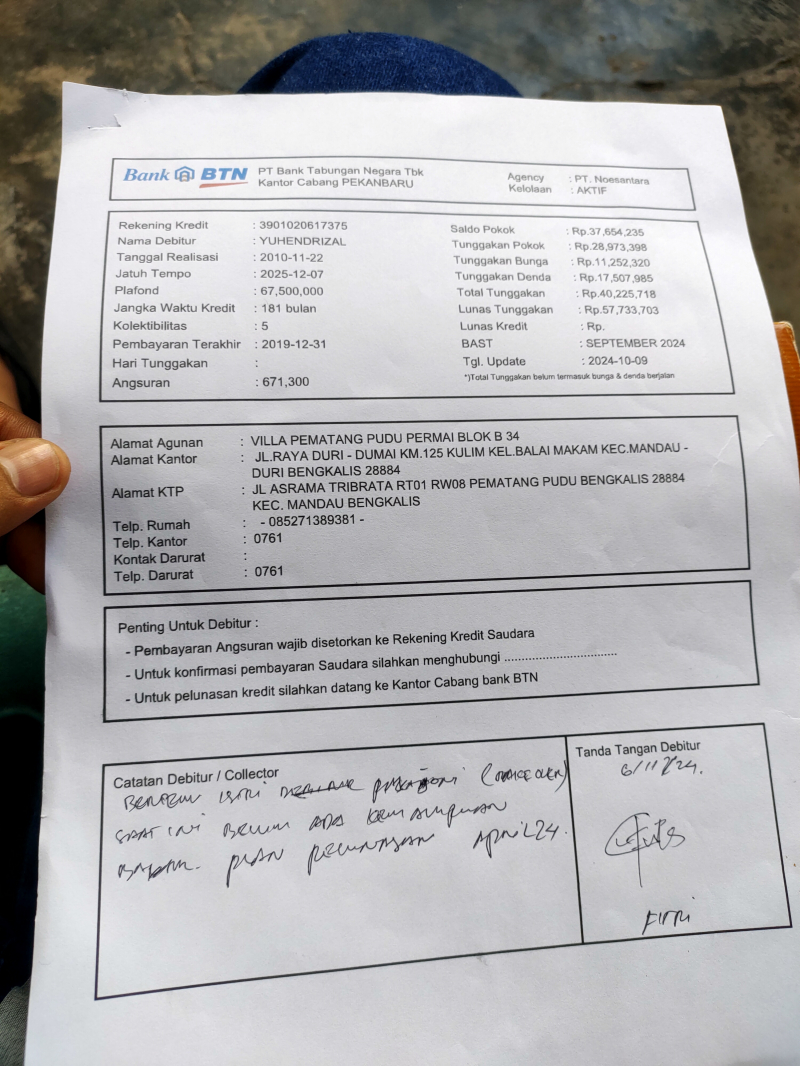 Bank BTN PT Bank Tabungan Negara Tbk
Kantor Cabang PEKANBARU
Agency : PT. Noesantara
Kelolaan : AKTIF
Rekening Kredit : 3901020617375
Nama Debitur : YUHENDRIZAL
Tanggal Realisasi : 2010-11-22
Jatuh Tempo : 2025-12-07
Plafond : 67,500,000
Jangka Waktu Kredit : 181 bulan
Kolektibilitas : 5
Pembayaran Terakhir : 2019-12-31
Hari Tunggakan :
Angsuran : 671,300
Saldo Pokok : Rp.37,654,235
Tunggakan Pokok : Rp.28,973,398
Tunggakan Bunga : Rp.11,252,320
Tunggakan Denda : Rp.17,507,985
Total Tunggakan : Rp.40,225,718
Lunas Tunggakan : Rp.57,733,703
Lunas Kredit : Rp.
BAST : SEPTEMBER 2024
Tgl. Update : 2024-10-09
*)Total Tunggakan belum termasuk bunga & denda berjalan
Alamat Agunan : VILLA PEMATANG PUDU PERMAI BLOK B 34
Alamat Kantor : JL.RAYA DURI - DUMAI KM.125 KULIM KEL.BALAI MAKAM KEC.MANDAU -
DURI BENGKALIS 28884
Alamat KTP : JL ASRAMA TRIBRATA RT01 RW08 PEMATANG PUDU BENGKALIS 28884
KEC. MANDAU BENGKALIS
Telp. Rumah : - 085271389381 -
Telp. Kantor : 0761
Kontak Darurat :
Telp. Darurat : 0761
Penting Untuk Debitur :
- Pembayaran Angsuran wajib disetorkan ke Rekening Kredit Saudara
- Untuk konfirmasi pembayaran Saudara silahkan menghubungi ................................
- Untuk pelunasan kredit silahkan datang ke Kantor Cabang bank BTN
Catatan Debitur / Collector
BERTEMU ISTRI (
SAAT INI BELUM ADA KEMAMPUAN
BAYAR. PLAN PELUNASAN APRIL 24.
Tanda Tangan Debitur
6/11/24.
FITRI